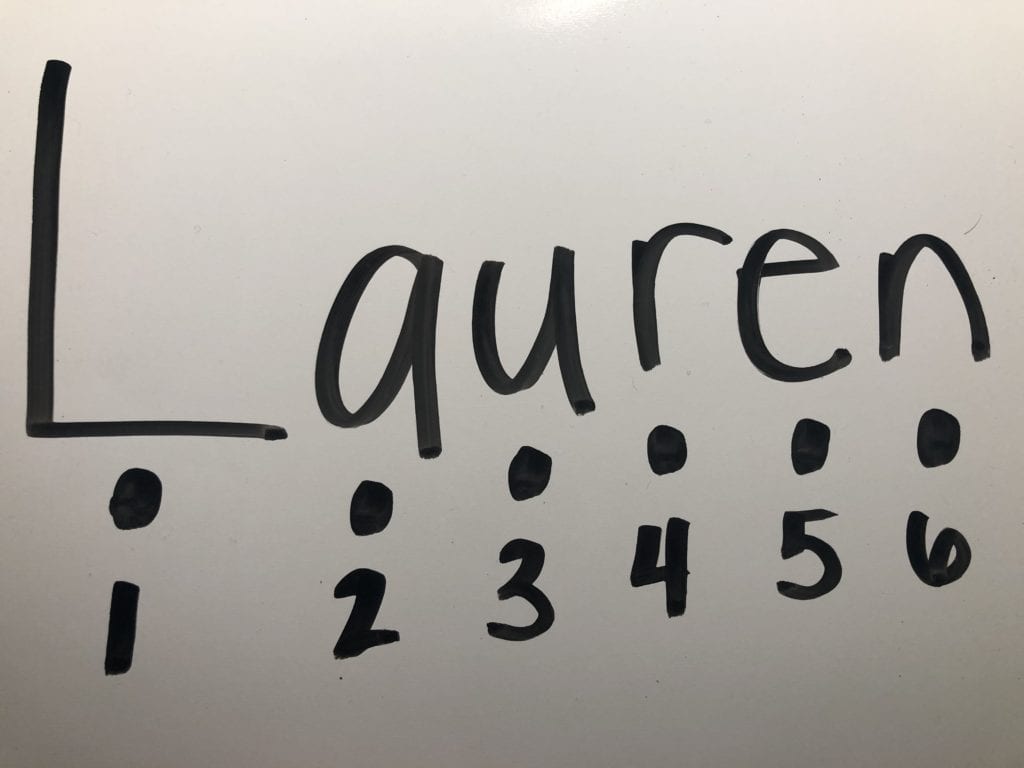 Lauren
1 2 3 4 5 6